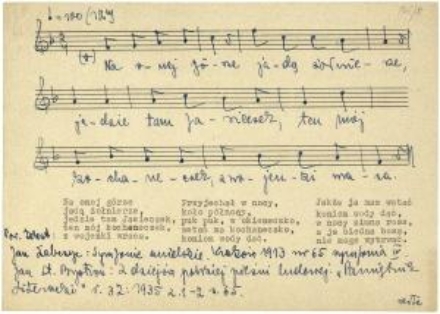 Na o-nej gó-rze ja-dą żoł-nie-rze,
je-dzie tam Ja-siecek, ten mój
ko-cha-ne-czek, z wo-jen-ki wra-ca.
Na onej górze
jadą żołnierze,
jedzie tam Jasieczek,
ten mój kochaneczek,
z wojenki wraca.
Przyjechał w nocy,
koło północy,
puk puk, w okieneczko,
wstań no kochaneczko,
koniom wody dać.
Jakże ja mam wstać
koniom wody dać,
w nocy zimna rosa,
a ja biedna bosa,
nie mogę wytrwać.
Jan Żabczyc: Symfonie anielskie. Kraków 1913 nr 65 symfonia IV
Jan St. Bystroń: Z dziejów polskiej pieśni ludowej. „Pamiętnik
Literacki" r. 32: 1935 z. 1-2 s. 65.
verte